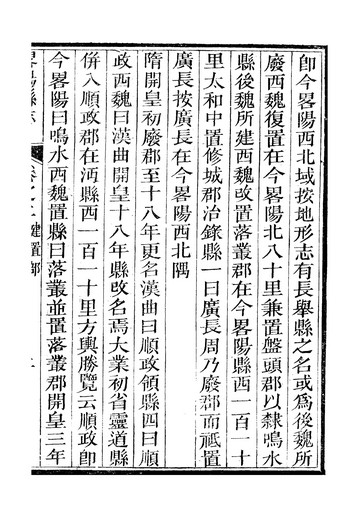 卽今畧陽西北域按地形志有長舉縣之名或爲後魏所
廢西魏復置在今畧陽北八十里兼置盤頭郡以隸鳴水
縣後魏所建西魏改置落叢郡在今畧陽縣西一百一十
里太和中置修城郡治錄縣一曰廣長周乃廢郡而祗置
廣長按廣長在今畧陽西北隅
隋開皇初廢郡至十八年更名漢曲曰順政領縣四曰順
政西魏曰漢曲開皇十八年縣改名焉大業初省靈道縣
倂入順政郡在沔縣西一百一十里方輿勝覽云順政卽
今畧陽曰鳴水西魏置縣曰落叢並置落叢郡開皇三年
畧陽縣志
卷之一
建置部